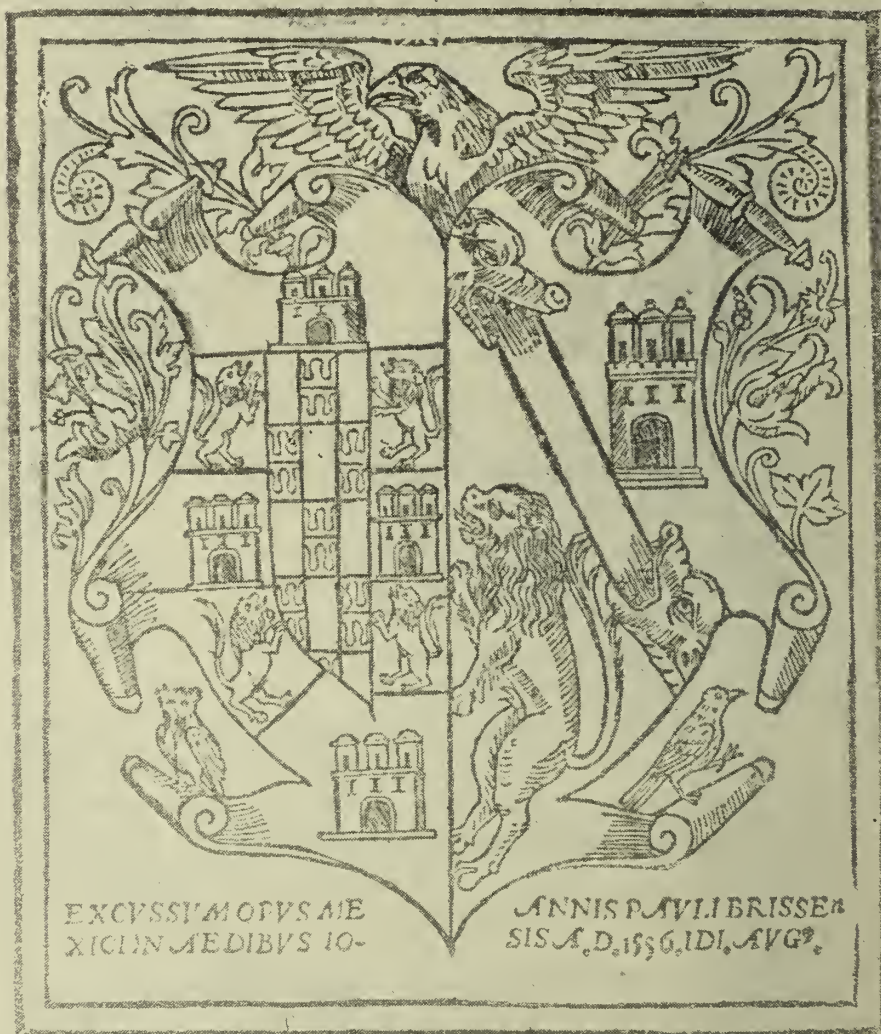 EXCVSSVM OPVS ME
XICI IN AEDIBVS IO-
ANNIS PAVLI BRISSEn
SIS A.D.1556.IDI.AVGꝰ.